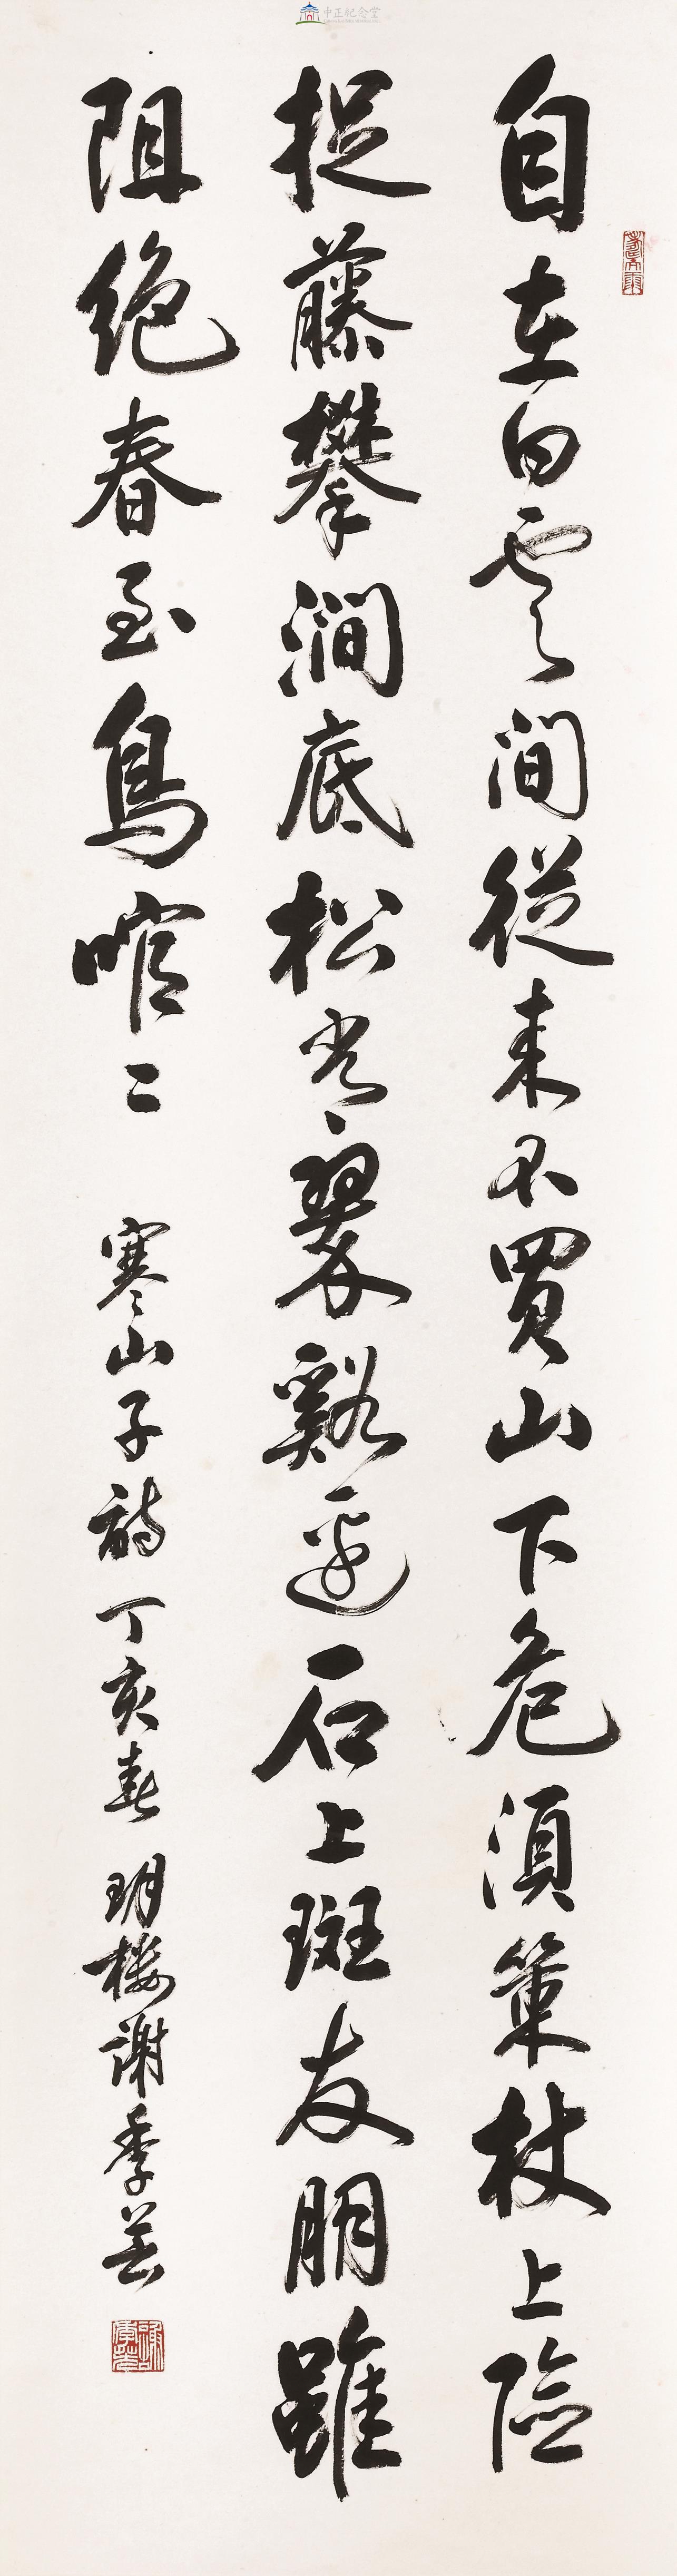 中正紀念堂
自在白雲間從來不買山下危須策杖上險
捉藤攀澗底松常翠谿邊石上斑友朋雖
阻絕春至鳥
寒山子詩丁亥春 玥樓謝季芸